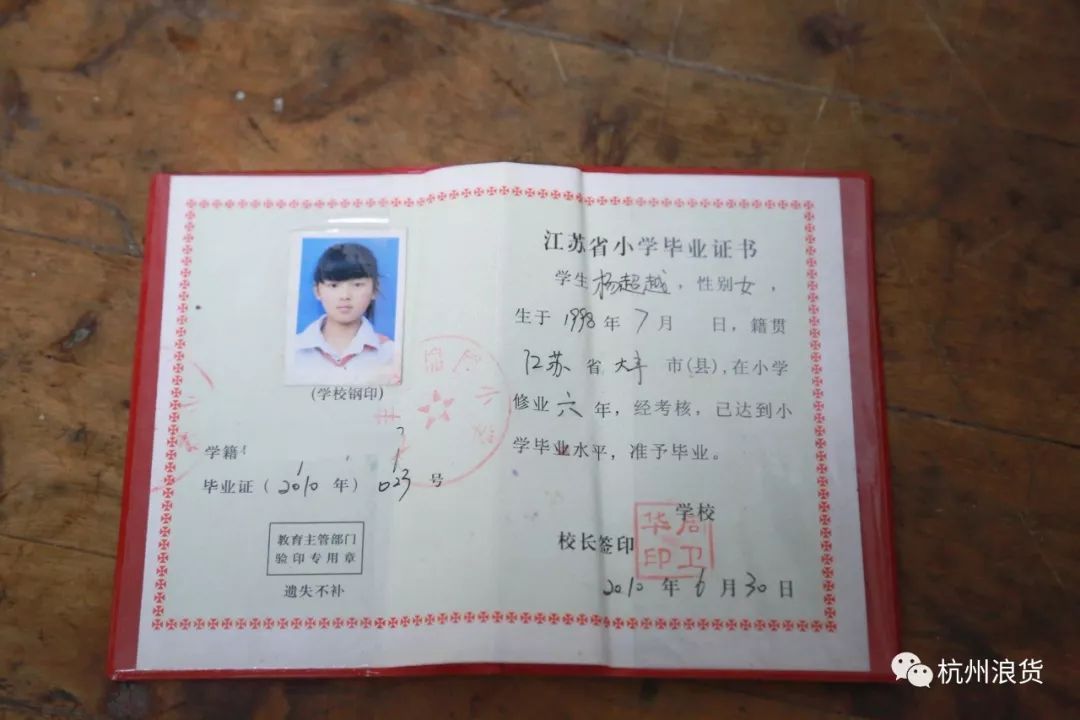 (学校钢印)
学籍
毕业证（2010年）023号
教育主管部门
验印专用章
遗失不补
江苏省小学毕业证书
学生杨超越，性别女，
生于1998年7月 日，籍贯
江苏省大丰市(县)，在小学
修业六年，经考核，已达到小
学毕业水平，准予毕业。
学校
校长签印
华启
印卫
2010年6月30日
杭州浪货